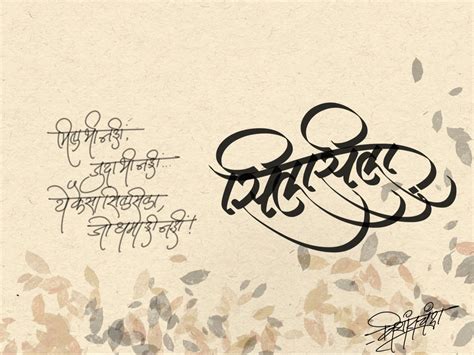 भी नहीं,
जुदा भी नहीं...
ये कैसा सिलसिला,
जो थमा ही नहीं!
सिलसिला